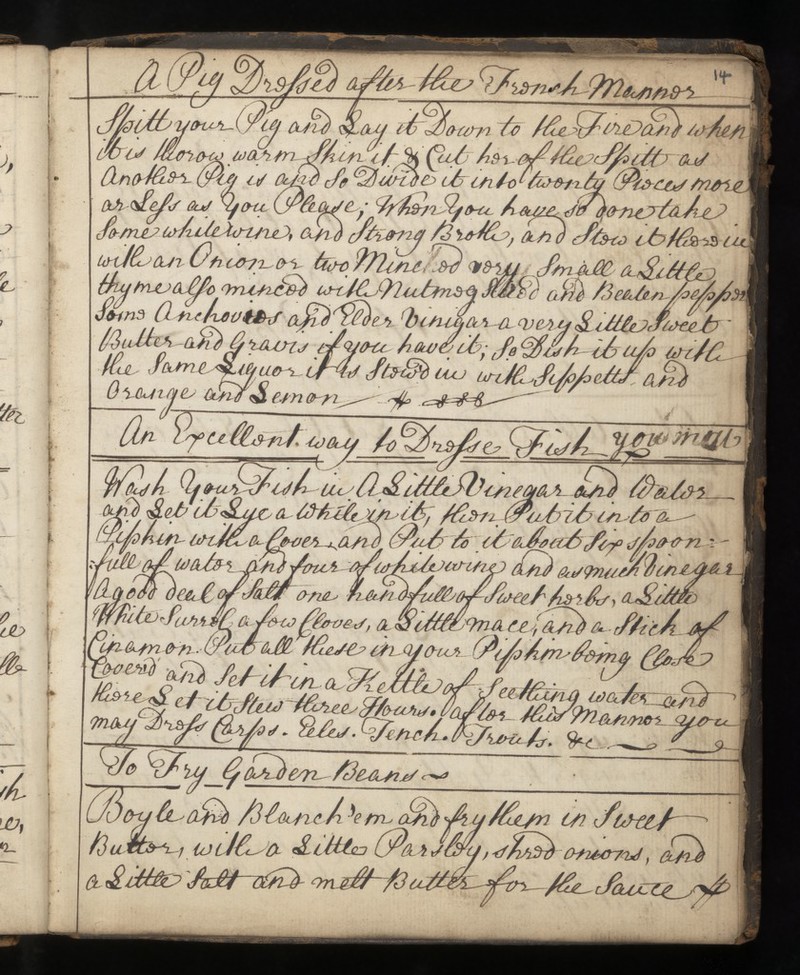 14
A Pig Dressed after the French Manner
Spitt your Pig and Lay it Down to the Fire and when
it is thorow warm Skin it & Cut her of the Spitt as
Another Pig is and So Divide it into twenty Pieces more
or Less as You Please; When You have so gone take
Some white wine, and Strong Broth, and Stew it therein
with an Onion or two Minced very Small a Little
thyme also minced with Nutmeg Sliced and Beaten pepper
Some Anchovies and Elder Vinigar a very Little Sweet
Butter and Gravis if you have it; So Dish it up with
the Same Liquor it is Stew'd in with Sippetts and
Orange and Lemon
An Excellent way to Dresse Fish you may
Wash Your Fish in A Little Vinegar and Water
and Let it Lye a While in it, then Put it into a
Pipkin with a Cover and Put to it about Six spoon-
full of water and four of white wine and as much Vinegar
A good deal of Salt one handfull of Sweet herbs, a Little
White Surrel a few Cloves, a Little mace, and a Stick of
Cinamon. Put all these in your Pipkin being Close
Coverd and Set it in a Kettle of Seething water and
there Let it Stew three Hours. after this Mannor you
may Dress Carps. Eeles. Tench. Trouts. &c
To Fry Garden Beans
Boyle and Blanch'em and fry them in Sweet
Butter, with a Little Parsley, shred onions, and
a Little Salt and melt Butter for the Sauce